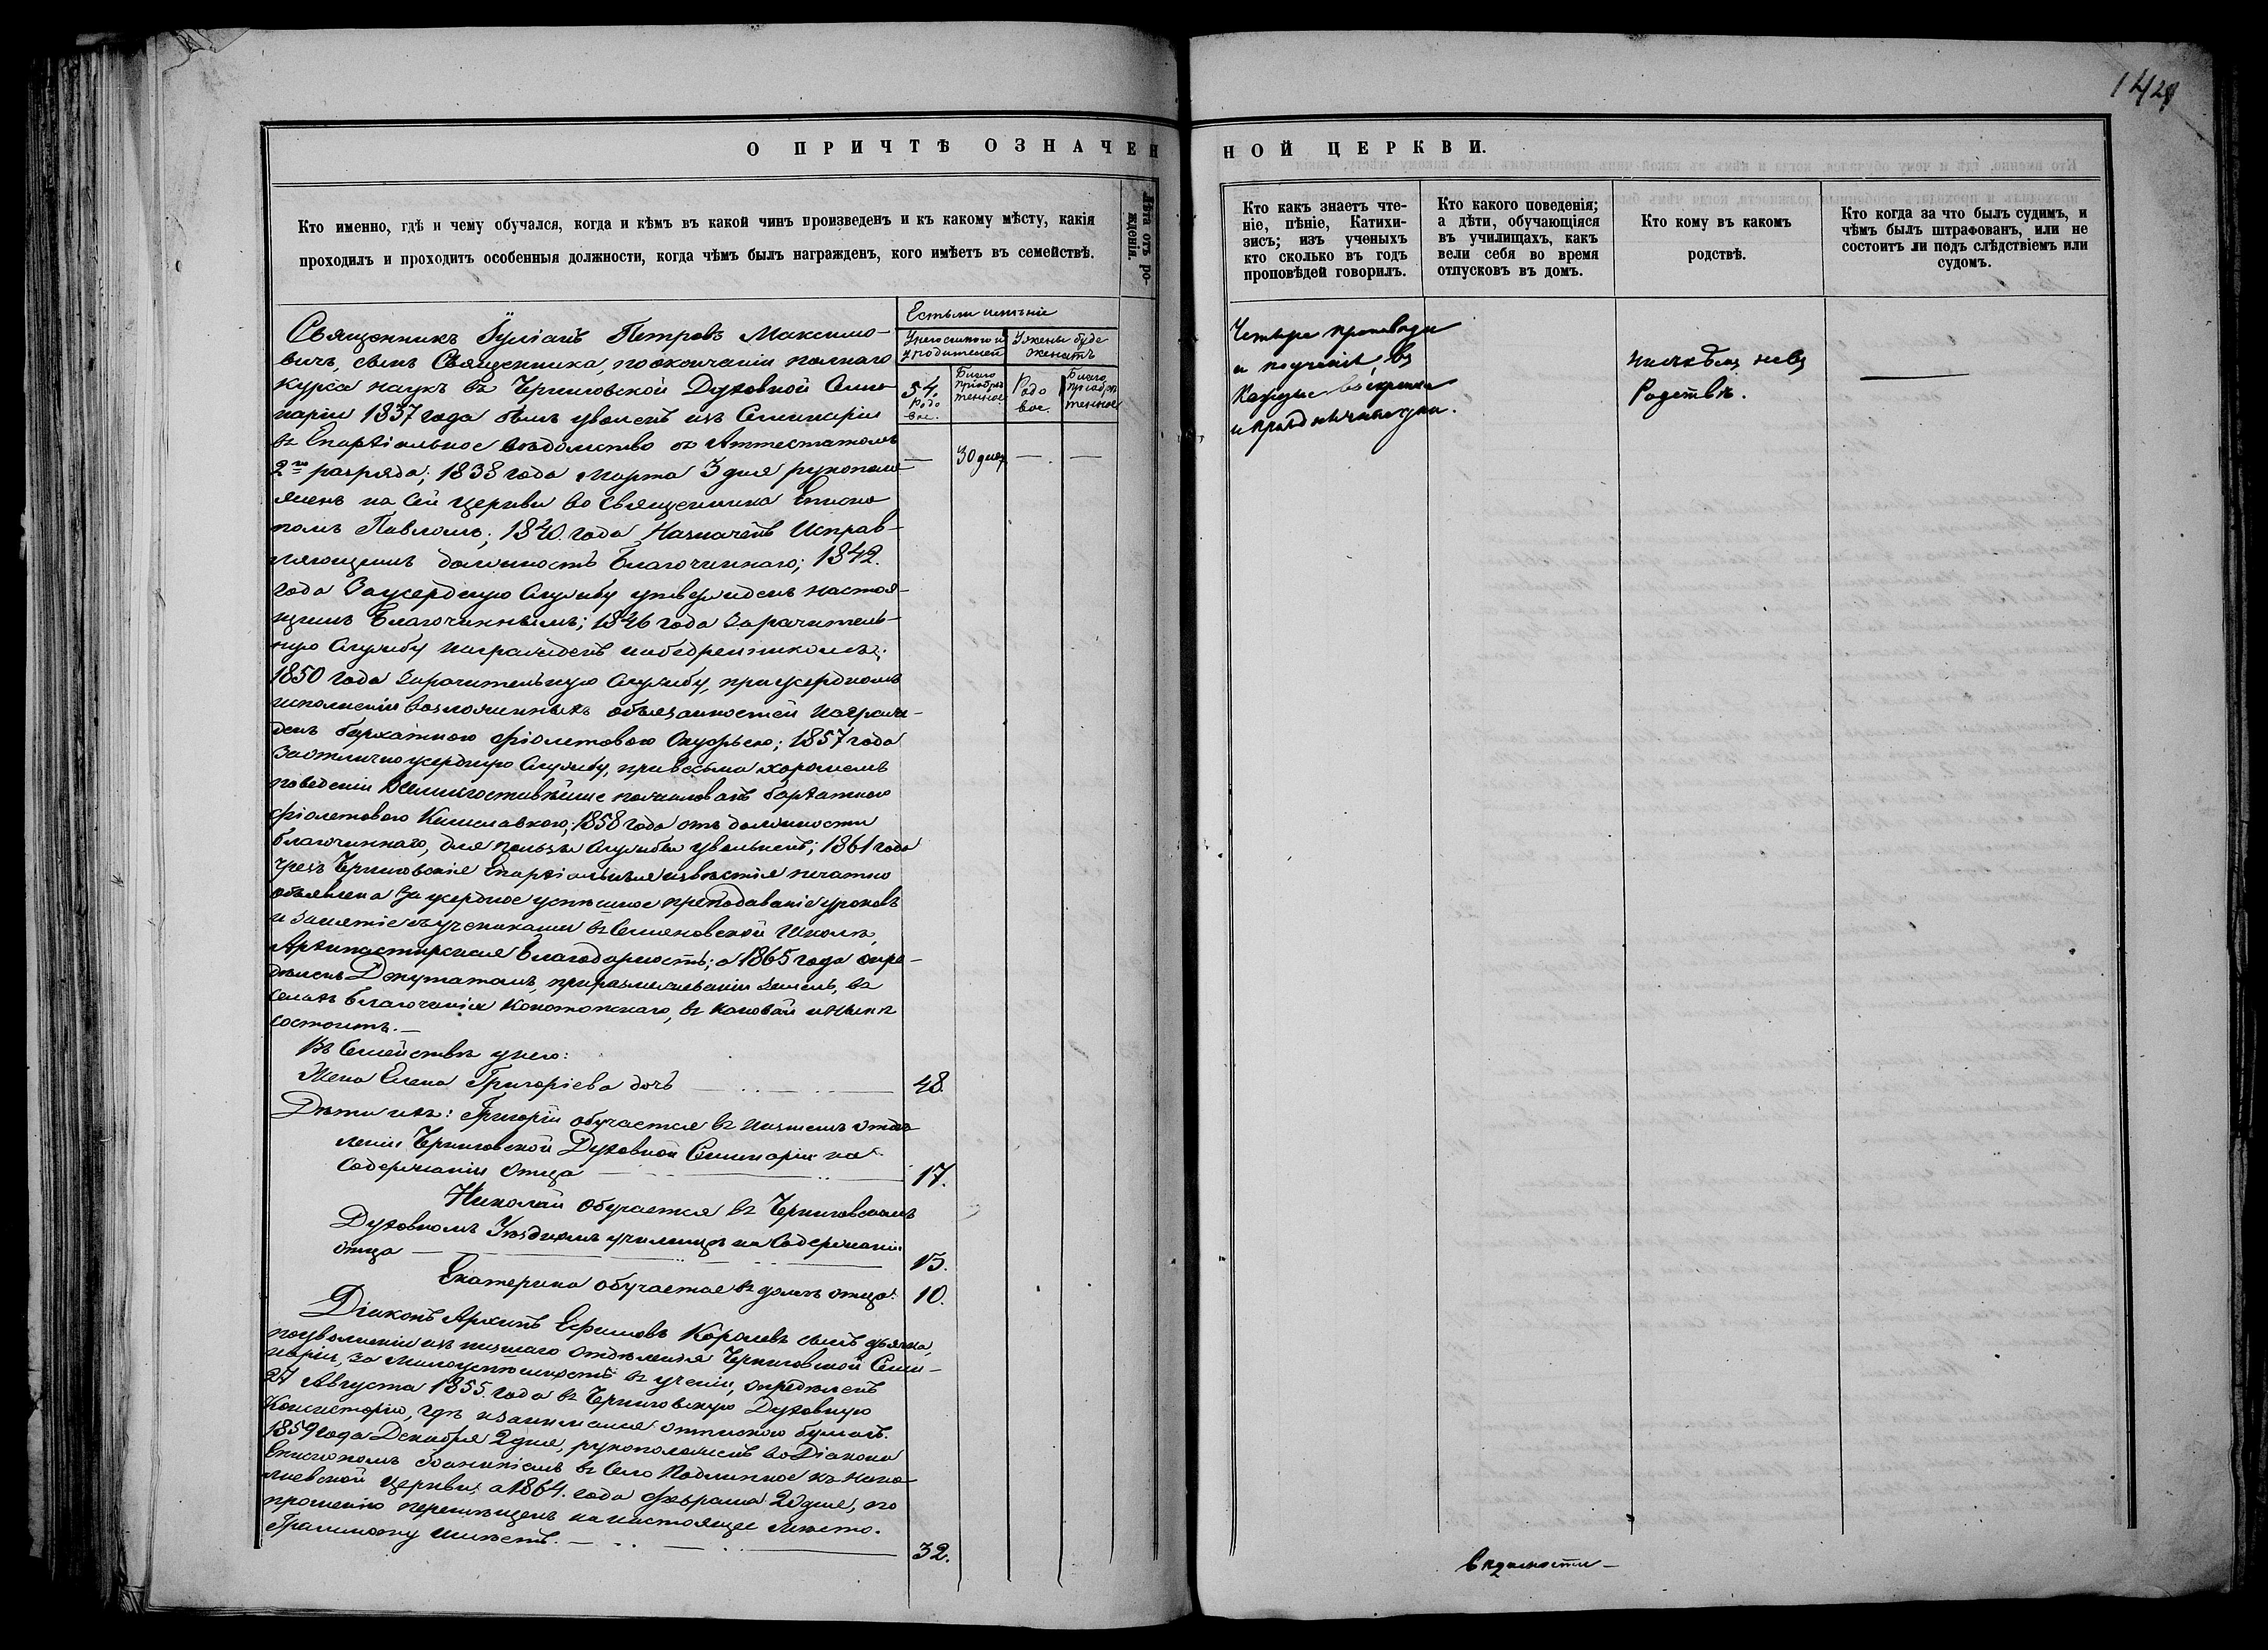 142
О ПРИЧТѢ ОЗНАЧЕННОЙ ЦЕРКВИ.
Кто именно, гдѣ и чему обучался, когда и кѣмъ въ какой чинъ произведенъ и къ какому мѣсту, какія
проходилъ и проходитъ особенныя должности, когда чѣмъ былъ награжденъ, кого имѣетъ въ семействѣ.
Лѣта отъ ро-
жденія.
Естьли имѣніе
У него самого и
у родителей
У жены буде
женатъ
54.
Родо
вое.
Благо
приобре
тенное
Родо
вое.
Благо
приобре
тенное
— 30 дес. — —
Священникъ Іуліанъ Петровъ Максимо-
вичъ, сынъ Священника, по окончаніи полнаго
курса наукъ въ Черниговской Духовной Семи-
наріи 1837 года былъ уволенъ изъ Семинаріи
въ Епархіальное вѣдомство съ Аттестатомъ
2го разряда; 1838 года Марта 3 дня рукополо-
женъ на сей церкви во Священника Еписко-
помъ Павломъ; 1840. года Назначенъ Исправ-
ляющимъ должность Благочиннаго; 1842.
года За усердную Службу утвержденъ настоя-
щимъ Благочиннымъ; 1846 года За рачитель-
ную Службу награжденъ набедренникомъ;
1850 года За рачительную Службу, при усердномъ
исполненіи возложенныхъ обязанностей Награж-
денъ бархатною фіолетовою Скуфьею; 1857 года
За отлично усердную Службу, при весьма хорошемъ
поведеніи Всемилостивѣйше пожалованъ бархатною
фіолетовою Камилавкою; 1858 года отъ должности
благочиннаго, для пользы Службы увольненъ; 1861 года
чрезъ Черниговскія Епархіальныя извѣстія печатно
объявлена За усердное успѣшное преподаваніе уроковъ
и Занятіе съ учениками въ Семяновской Школѣ,
Архипастырская Благодарность; а 1865 года опре-
дѣленъ Депутатомъ, при размежеваніи Земель, въ
селахъ Благочинія Конотопскаго, въ каковой и нынѣ
состоитъ. —
Въ Семействѣ у него:
Жена Елена Григоріева дочь 48.
Дѣти ихъ: Григорій обучается въ низшемъ отдѣ-
леніи Черниговской Духовной Семинаріи на
Содержаніи Отца 17.
Николай Обучается въ Черниговскомъ
Духовномъ Уѣздномъ училищѣ на Содержаніи
отца 15.
Екатерина обучается въ домѣ отца. 10.
Діаконъ Архипъ Ефимовъ Королевъ сынъ дьячка,
по увольненіи изъ низшаго Отдѣленія Черниговской Семи-
наріи, за малоуспѣшность въ ученіи, опредѣленъ
27 Августа 1855. года въ Черниговскую Духовную
Консисторію, гдѣ и занимался отпискою бумагъ.
1859 года Декабря 2 дня, рукоположенъ во Діакона
Епископомъ въ Село Подлипное къ Нико-
лаевской церкви, а 1864. года Февраля 20 дня, по
прошенію перемѣщенъ на настоящее мѣсто.
Граммоту имѣетъ. 32.
Кто какъ знаетъ чте-
ніе, пѣніе, Катихи-
зисъ; изъ ученыхъ
кто сколько въ годъ
проповѣдей говорилъ.
Кто какого поведенія;
а дѣти, обучающіяся
въ училищахъ, какъ
вели себя во время
отпусковъ въ домъ.
Кто кому въ какомъ
родствѣ.
Кто когда за что былъ судимъ, и
чѣмъ былъ штрафованъ, или не
состоитъ ли подъ слѣдствіемъ или
судомъ.
Четыре проповѣди
и поученія, въ
Каждые воскресные
и праздничные дни.
ни съ кѣмъ не въ
Родствѣ.
—